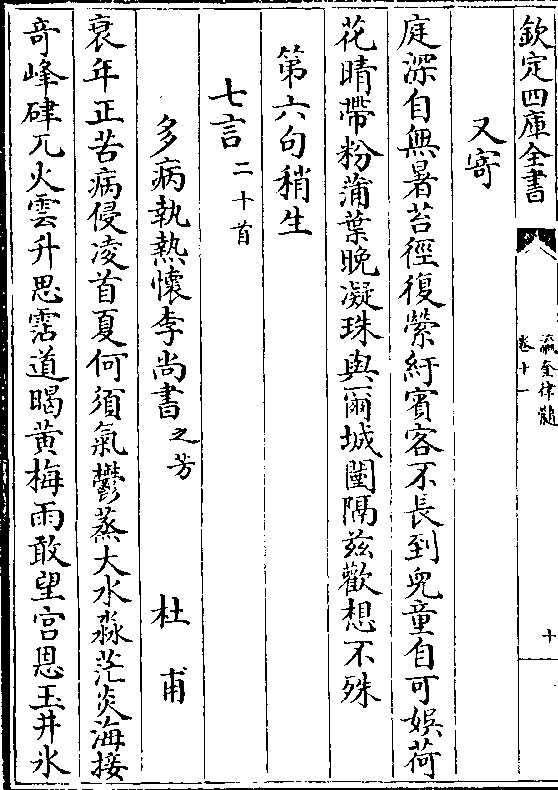 欽定四庫全書
瀛奎律髓
卷十一
十
又寄
庭深自無暑苔徑復縈紆賓客不長到兒童自可娯荷
花晴帶粉蒲葉晚凝珠與爾城闉隔兹歡想不殊
第六句稍生
七言二十首
多病執熱懷李尚書之芳
杜甫
衰年正苦病侵凌首夏何須氣鬱蒸大水淼茫炎海接
奇峰硉兀火雲升思霑道暍黄梅雨敢望宫恩玉井氷